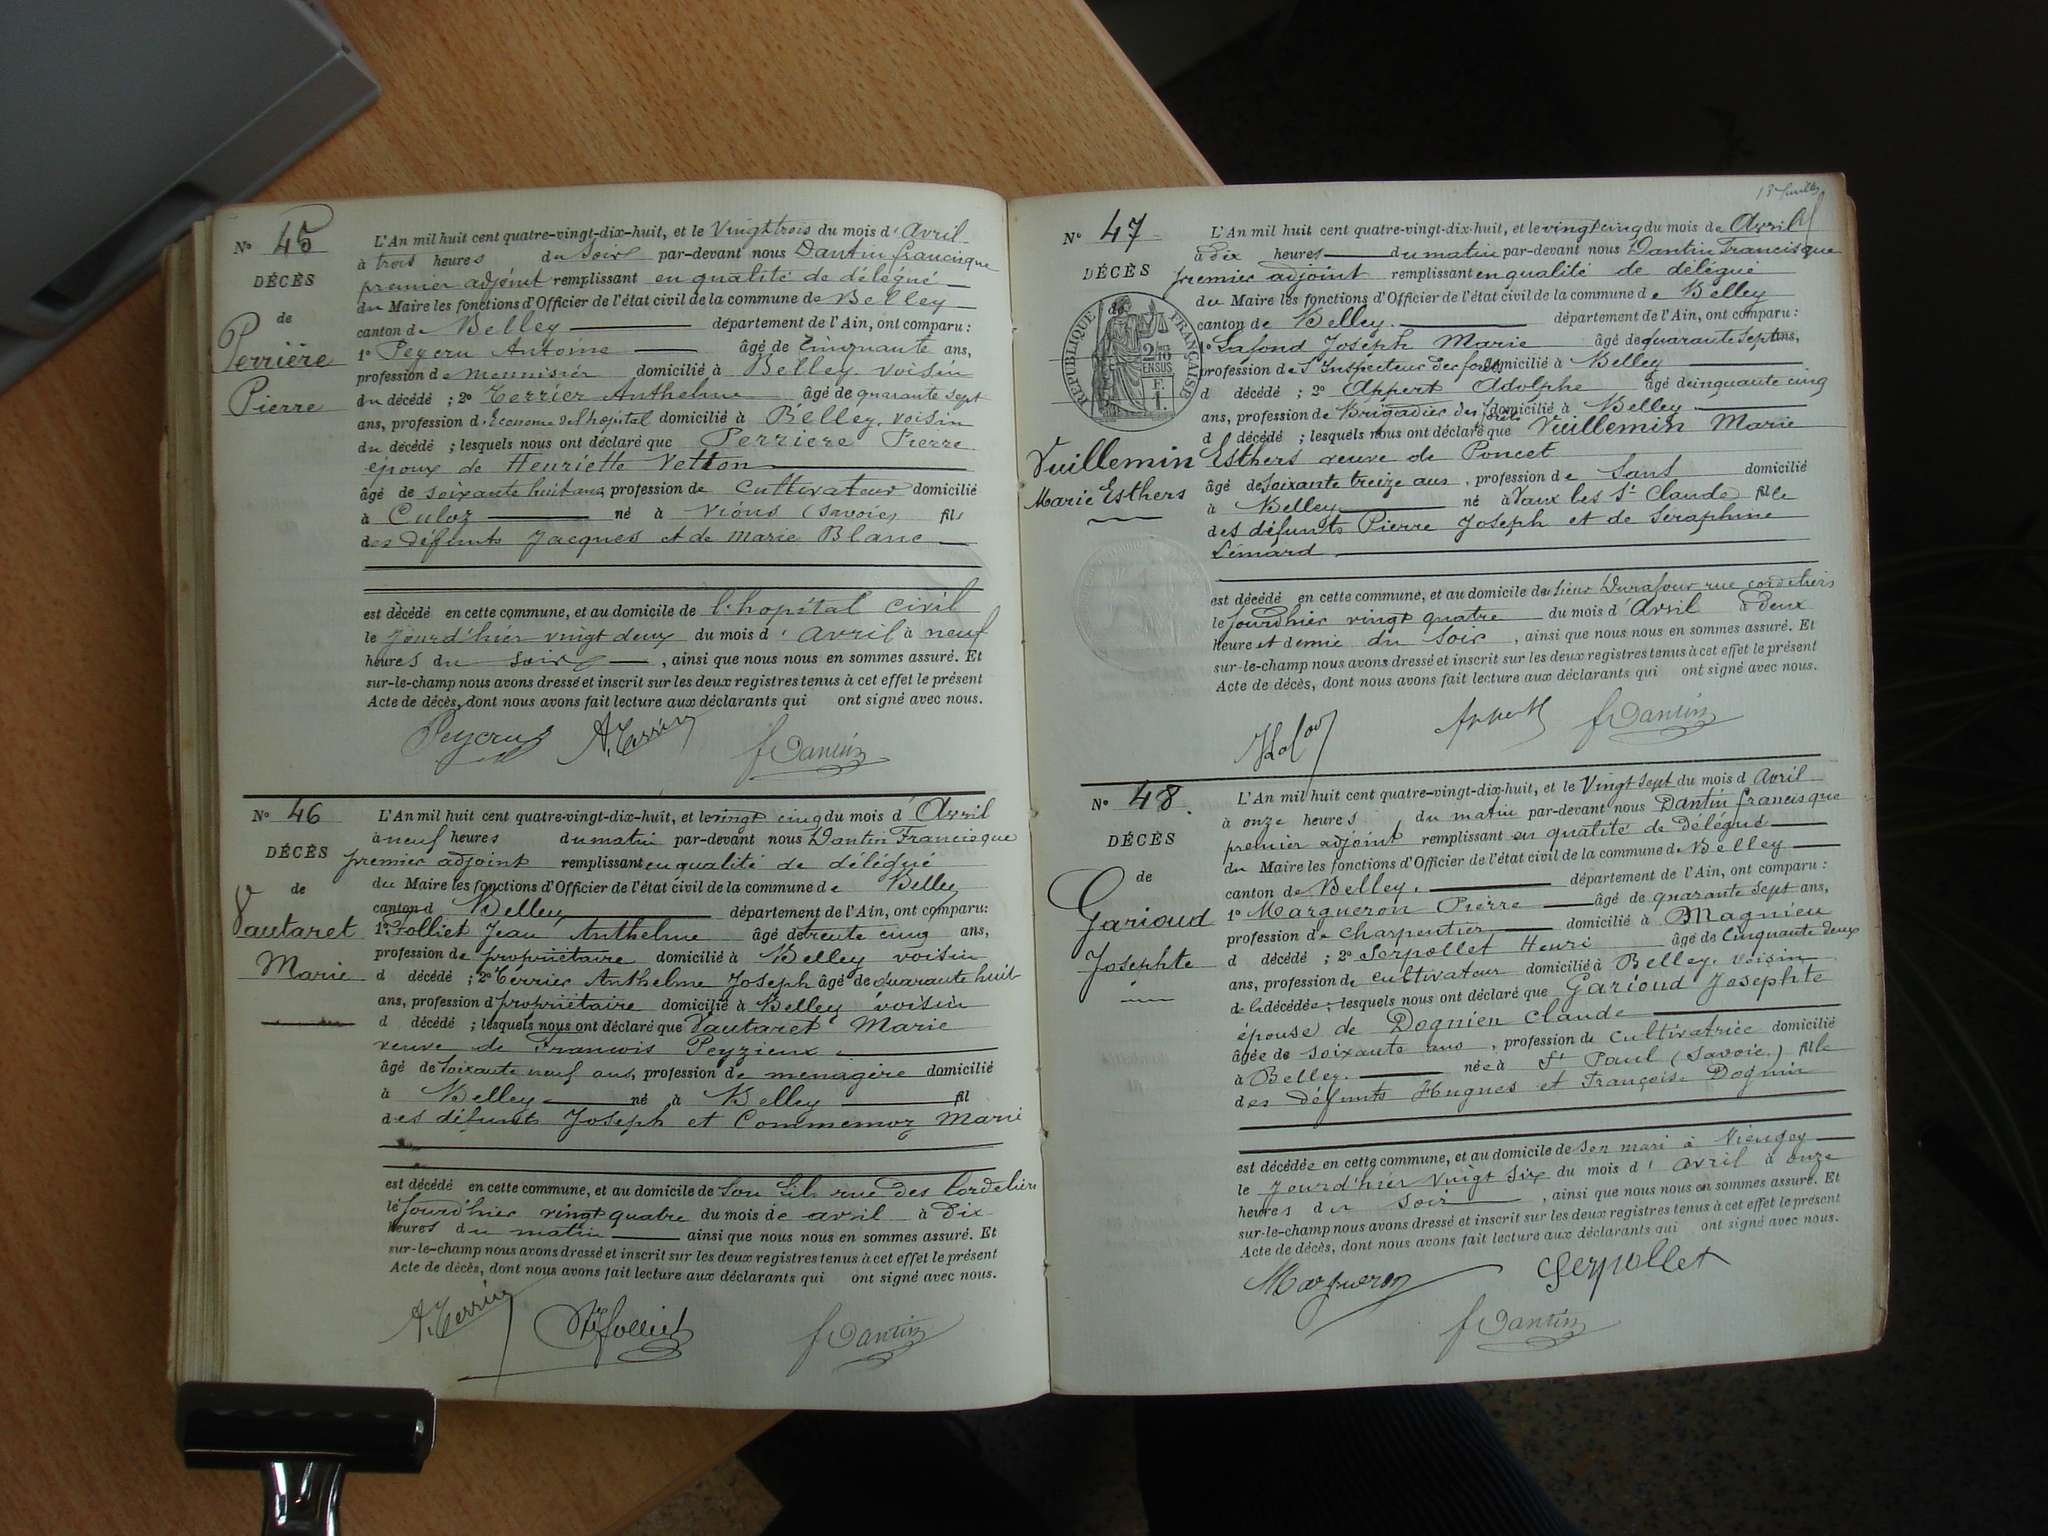 N° 45
DÉCÈS
de
Perrière
Pierre
L'An mil huit cent quatre-vingt-dix-huit, et le Vingt trois du mois d'Avril
à trois heures du soir par-devant nous Dantin francisque
premier adjoint remplissant en qualité de délégué
du Maire les fonctions d'Officier de l'état civil de la commune de Belley
canton de Belley département de l'Ain, ont comparu :
1° Peycru Antoine âgé de Cinquante ans,
profession de menuisier domicilié à Belley. voisin
du décédé ; 2° Terrier Anthelme âgé de quarante sept
ans, profession d'Econome de l'hopital domicilié à Belley. voisin
du décédé ; lesquels nous ont déclaré que Perriere Pierre
époux de Henriette Vetton
âgé de soixante huit ans profession de cultivateur domicilié
à Culoz né à Vions (Savoie) fils
des défunts Jacques et de marie Blanc
est décédé en cette commune, et au domicile de l'hopital civil
le jourd'hier vingt deux du mois d'avril à neuf
heures du soir, ainsi que nous nous en sommes assuré. Et
sur-le-champ nous avons dressé et inscrit sur les deux registres tenus à cet effet le présent
Acte de décès, dont nous avons fait lecture aux déclarants qui ont signé avec nous.
Peycru A. Terrier f Dantin
N° 46
DÉCÈS
de
Vautaret
Marie
L'An mil huit cent quatre-vingt-dix-huit, et le vingt cinq du mois d'Avril
à neuf heures du matin par-devant nous Dantin Francisque
premier adjoint remplissant en qualité de délégué
du Maire les fonctions d'Officier de l'état civil de la commune de Belley
canton d Belley département de l'Ain, ont comparu:
1° Folliet Jean Anthelme âgé de trente cinq ans,
profession de propriétaire domicilié à Belley voisin
d décédé ; 2° Terrier Anthelme Joseph âgé de quarante huit
ans, profession d propriétaire domicilié à Belley voisin
d décédé ; lesquels nous ont déclaré que Vautaret Marie
veuve de Francois Peyzieux
âgé de soixante neuf ans, profession de menagère domicilié
à Belley né à Belley fil
des défunts Joseph et Commemoz Marie
est décédé en cette commune, et au domicile de son fils rue des Cordeliers
le jourd'hier vingt quatre du mois de avril à dix
heures du matin ainsi que nous nous en sommes assuré. Et
sur-le-champ nous avons dressé et inscrit sur les deux registres tenus à cet effet le présent
Acte de décès, dont nous avons fait lecture aux déclarants qui ont signé avec nous.
A. Terrier Folliet f Dantin
N° 47
DÉCÈS
de
RÉPUBLIQUE FRANÇAISE
Vuillemin
Marie Esthers
L'An mil huit cent quatre-vingt-dix-huit, et le vingt cinq du mois de Avril
à dix heures du matin par-devant nous Dantin Francisque
premier adjoint remplissant en qualité de délégué
du Maire les fonctions d'Officier de l'état civil de la commune de Belley
canton de Belley. département de l'Ain, ont comparu :
1° Lafond Joseph Marie âgé de quarante sept ans,
profession de S. Inspecteur des forêts domicilié à Belley
d décédé ; 2° Appert Adolphe âgé de cinquante cinq
ans, profession de Brigadier des forêts domicilié à Belley
d décédé ; lesquels nous ont déclaré que Vuillemin Marie
Esthers veuve de Poncet
âgé de soixante treize ans, profession de sans domicilié
à Belley né à Vaux les St Claude fille
des défunts Pierre Joseph et de Séraphine
Lémard
est décédé en cette commune, et au domicile du sieur Durafour rue cordeliers
le jourdhier vingt quatre du mois d'Avril à deux
heure et demie du soir, ainsi que nous nous en sommes assuré. Et
sur-le-champ nous avons dressé et inscrit sur les deux registres tenus à cet effet le présent
Acte de décès, dont nous avons fait lecture aux déclarants qui ont signé avec nous.
Appert f Dantin
N° 48
DÉCÈS
de
Garioud
Josephte
L'An mil huit cent quatre-vingt-dix-huit, et le Vingt sept du mois d Avril
à onze heures du matin par-devant nous Dantin francisque
premier adjoint remplissant en qualité de Délégué
du Maire les fonctions d'Officier de l'état civil de la commune de Belley
canton de Belley. département de l'Ain, ont comparu :
1° Margueron Pierre âgé de quarante sept ans,
profession de charpentier domicilié à Magnieu
d décédé ; 2° Serpollet Henri âgé de Cinquante deux
ans, profession de cultivateur domicilié à Belley. voisin
de la décédée ; lesquels nous ont déclaré que Garioud Josephte
épouse de Dognien Claude
âgée de soixante ans, profession de Cultivatrice domicilié
à Belley. née à St Paul (Savoie) fille
des défunts Hugues et Françoise Dognin
est décédée en cette commune, et au domicile de son mari à
le jourd'hier Vingt Six du mois d'avril à onze
heures du soir, ainsi que nous nous en sommes assuré. Et
sur-le-champ nous avons dressé et inscrit sur les deux registres tenus à cet effet le présent
Acte de décès, dont nous avons fait lecture aux déclarants qui ont signé avec nous.
Margueron Serpollet
f Dantin